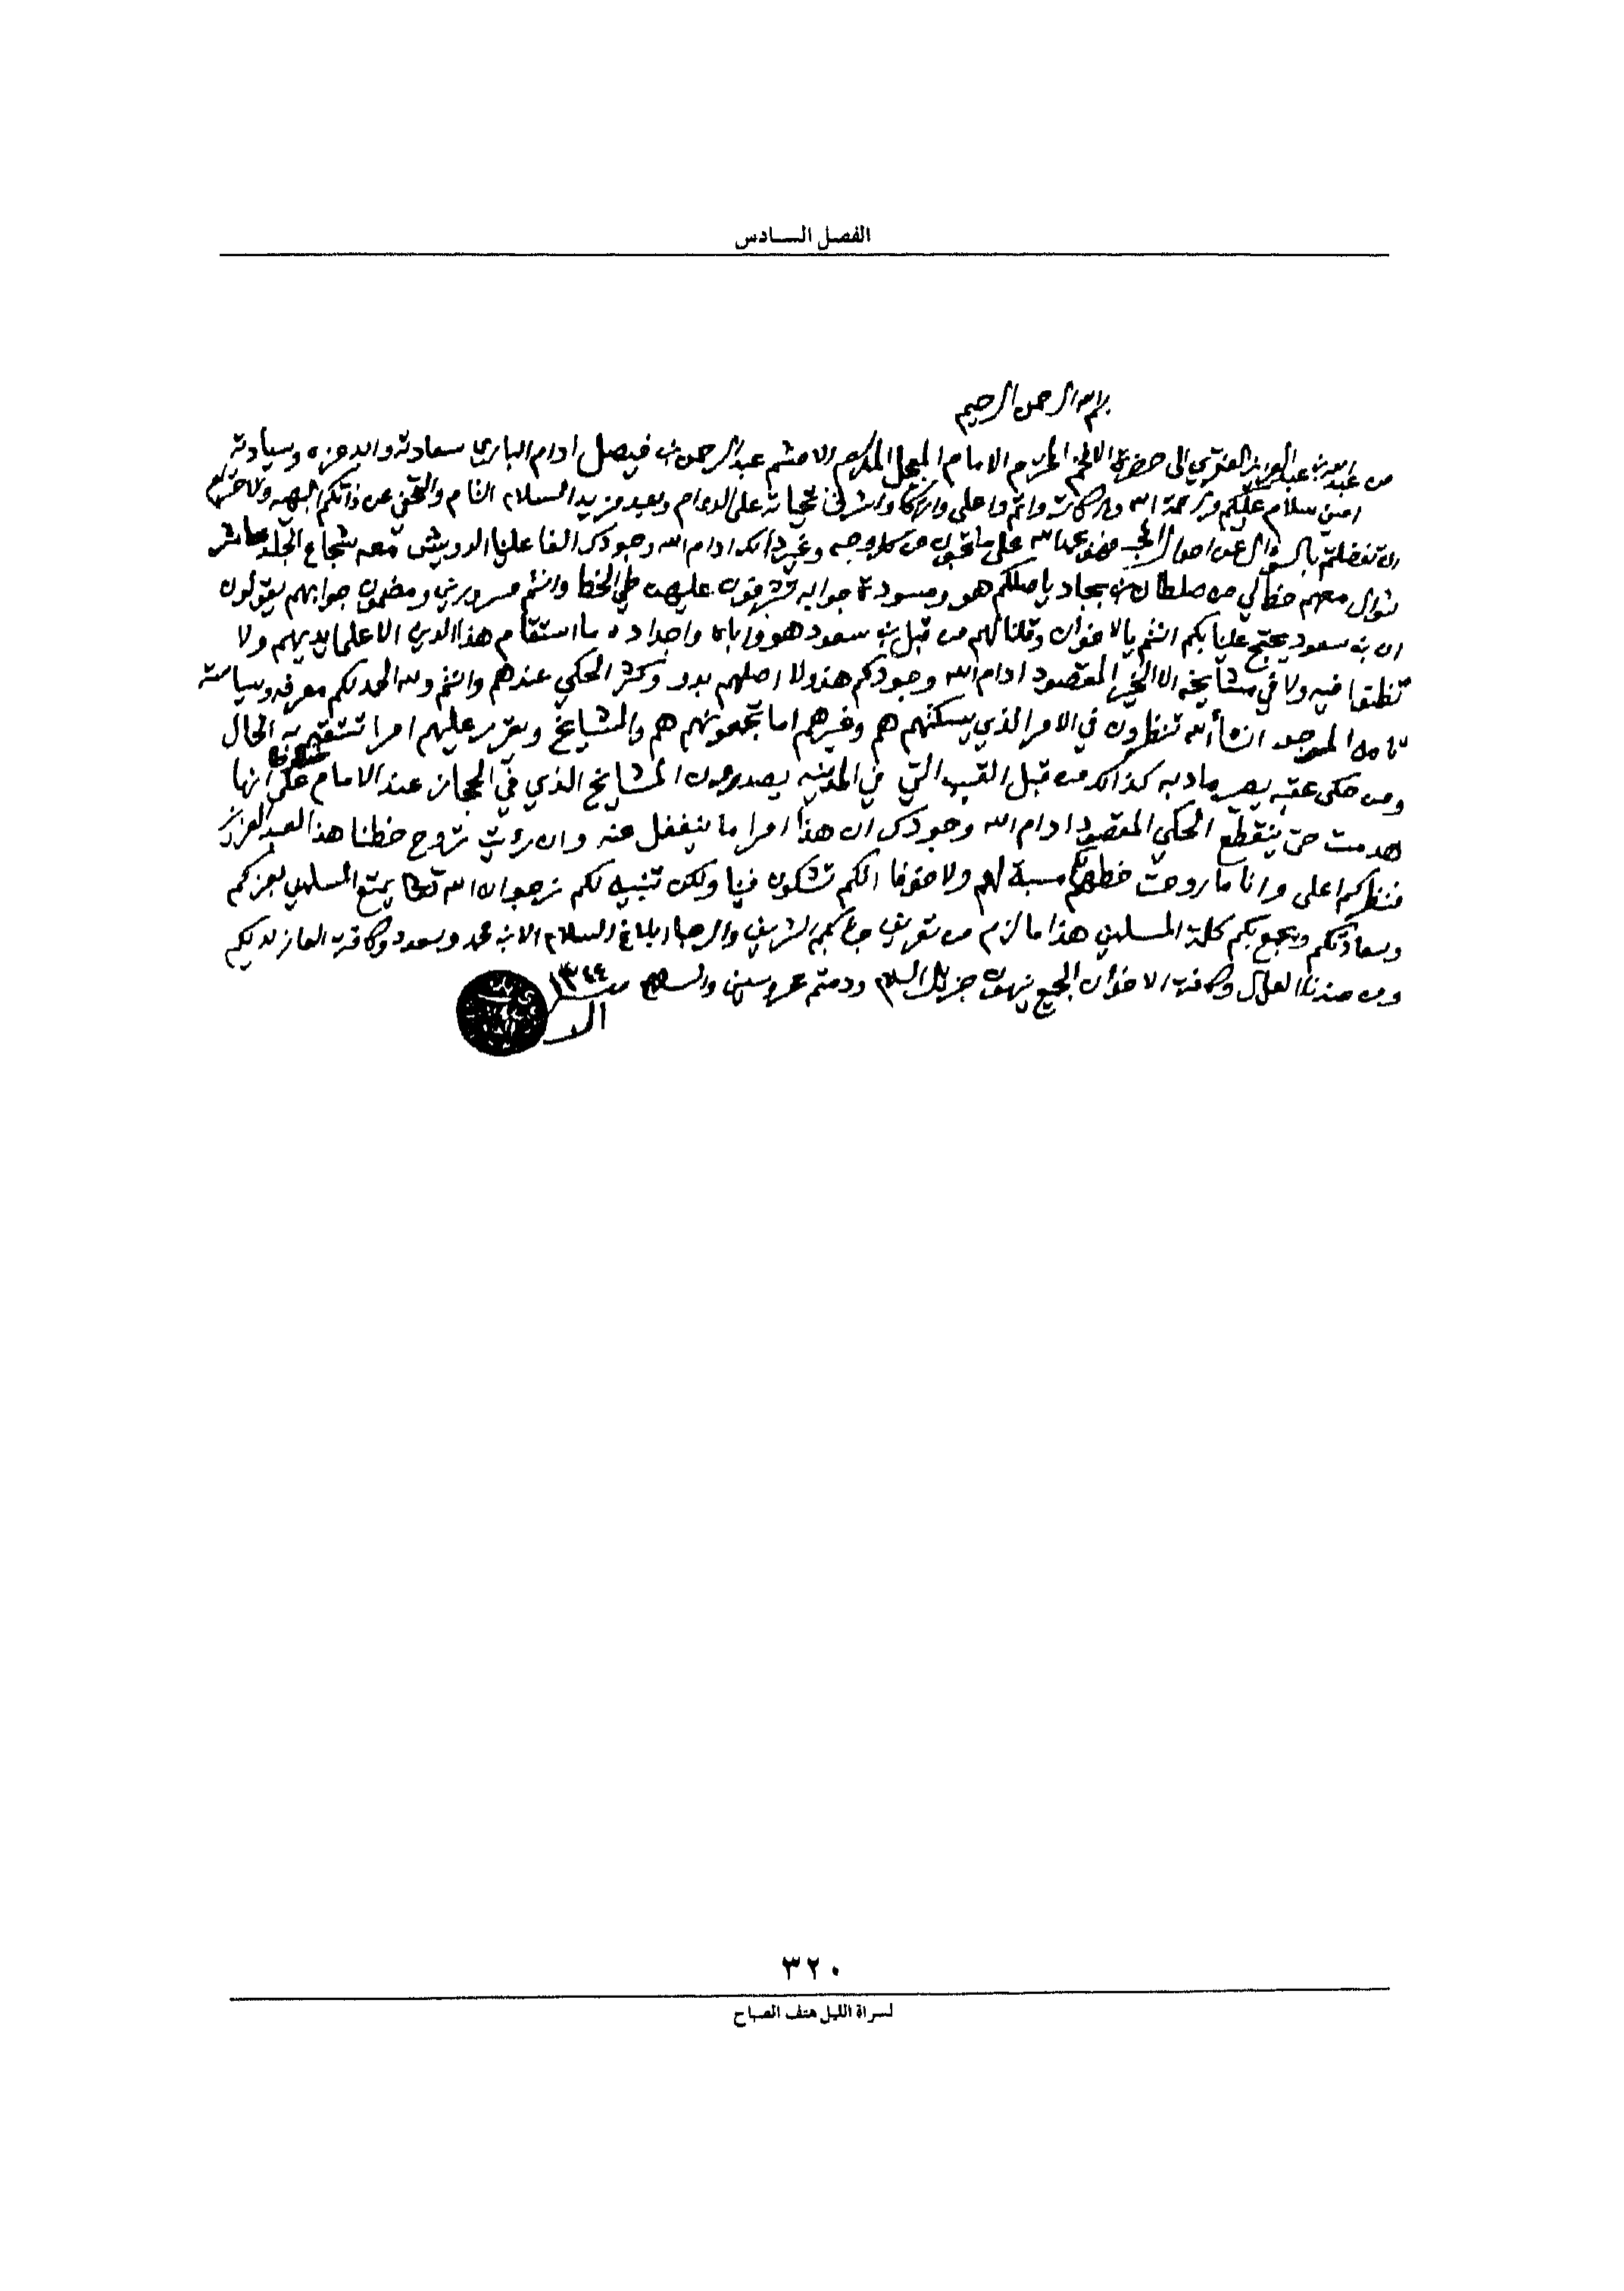 الفصل السادس
بسم الله الرحمن الرحيم
من عبدالله بن عبدالعزيز العنقري الى حضرة الاخ المكرم الامام المبجل المكرم الاحشم عبدالرحمن بن فيصل ادام الباري سعادته وابد عزه وسيادته
امين سلام عليكم ورحمة الله وبركاته واتم واعلى وازكا واشرف تحياته على الدوام وبعد مزيد السلام التام والتحفي عن ذاتكم البهيه ولاحترام
ان تفضلتم بالسؤال عن احوال المحب فهو بحمدالله على ما تحبون من كل وجه وغير ذالك ادام الله وجودك الفا علينا الدويش معه شجاع
شوال معهم خط لي من سلطان بن بجاد ياصلكم هو ومسودة جوابه تشرفون عليهن طي الخط وانتم مسرورين ومضمون جوابهم يقولون
ان بن سعود يحتج علينا بكم انتم يالاخوان وقلنا لهم من قبل بن سعود هو وابائه واجداده ما استقام هذا الدين الا على يديهم ولا
فيه ولا في مشايخه الا الخير المقصود ادام الله وجودكم هذولا اصلهم بدو وكثر الحكي عندهم وانتم ولله الحمد لكم معرفه وسياسة
انشأ الله تنظرون في الامر الذي يسكنهم هم وغيرهم اما تجمعونهم هم والمشايخ ويقرر عليهم امرا تستقر به الحال
ومن حكى عقبه يصير مادبه كذالك من قبل القبب التي في المدينه المشايخ الذي في الحجاز عند الامام على انها
هدمت حتى ينقطع الحكي المقصود ادام الله وجودك ان هذا امرا ما ينغفل عنه وان رايت تروح خطنا هذا لعبدالعزيز
فنظركم اعلى وانا ما روحت خطهم مسبة لهم ولا خوفا انكم تشكون فينا ولكن تنبيه لكم نرجوا ان الله تعالى يمتع المسلمين بعزكم
وسعادتكم ويجمع بكم كلمة المسلمين هذا ما لزم من تعريف جنابكم الشريف والرجاء ابلاغ السلام الابن محمد وسعود وكافة العزاز لديكم
ومن عندنا العيال وكافة الاخوان الجميع ينهون جزيل السلام ودمتم محروسين والسلام سنة ١٣٤٤
٣٢٠
لسراة الليل هتف الصباح